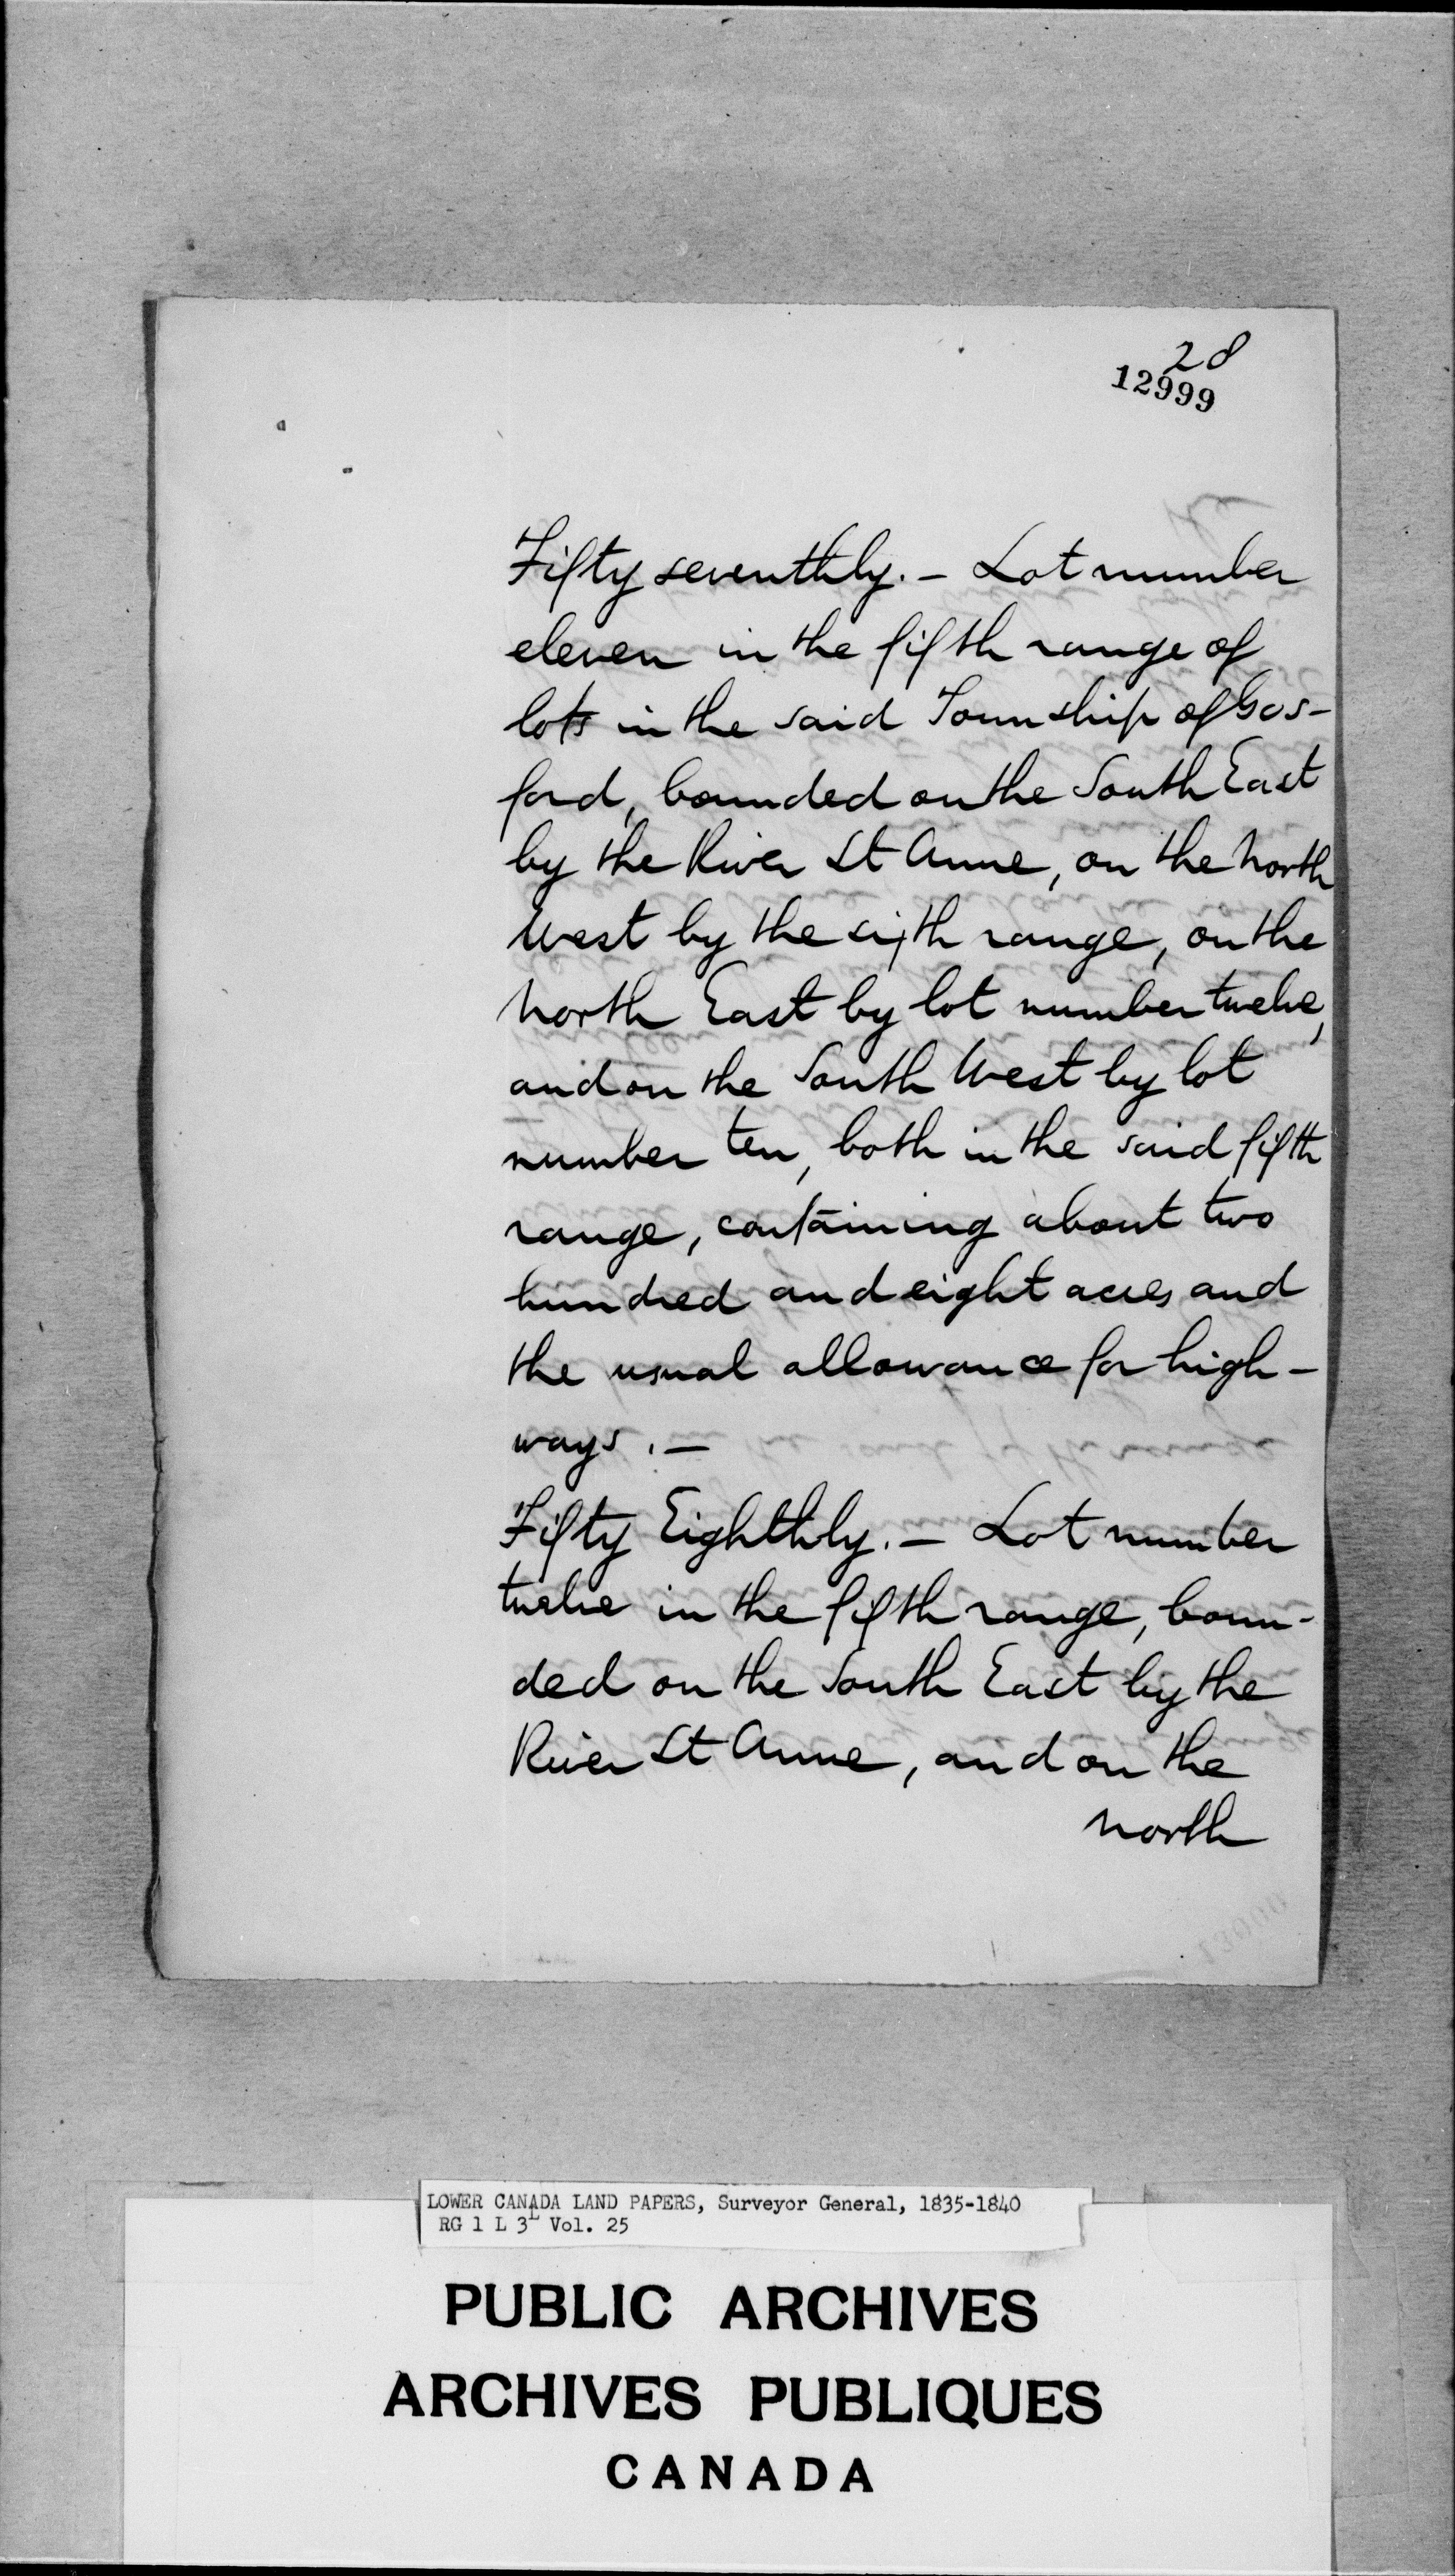 28
12999
Fifty seventhly. - Lot number
eleven in the fifth range of
lots in the said Township of Gos-
ford, bounded on the South East
by the River St Anne, on the North
West by the sixth range, on the
North East by lot number twelve,
and on the South West by lot
number ten, both in the said fifth
range, containing about two
hundred and eight acres and
the usual allowance for high-
ways. -
Fifty Eighthly. - Lot number
twelve in the fifth range, boun-
ded on the South East by the
River St Anne, and on the
North
LOWER CANADA LAND PAPERS, Surveyor General, 1835-1840
RG 1 L 3L Vol. 25
PUBLIC ARCHIVES
ARCHIVES PUBLIQUES
CANADA